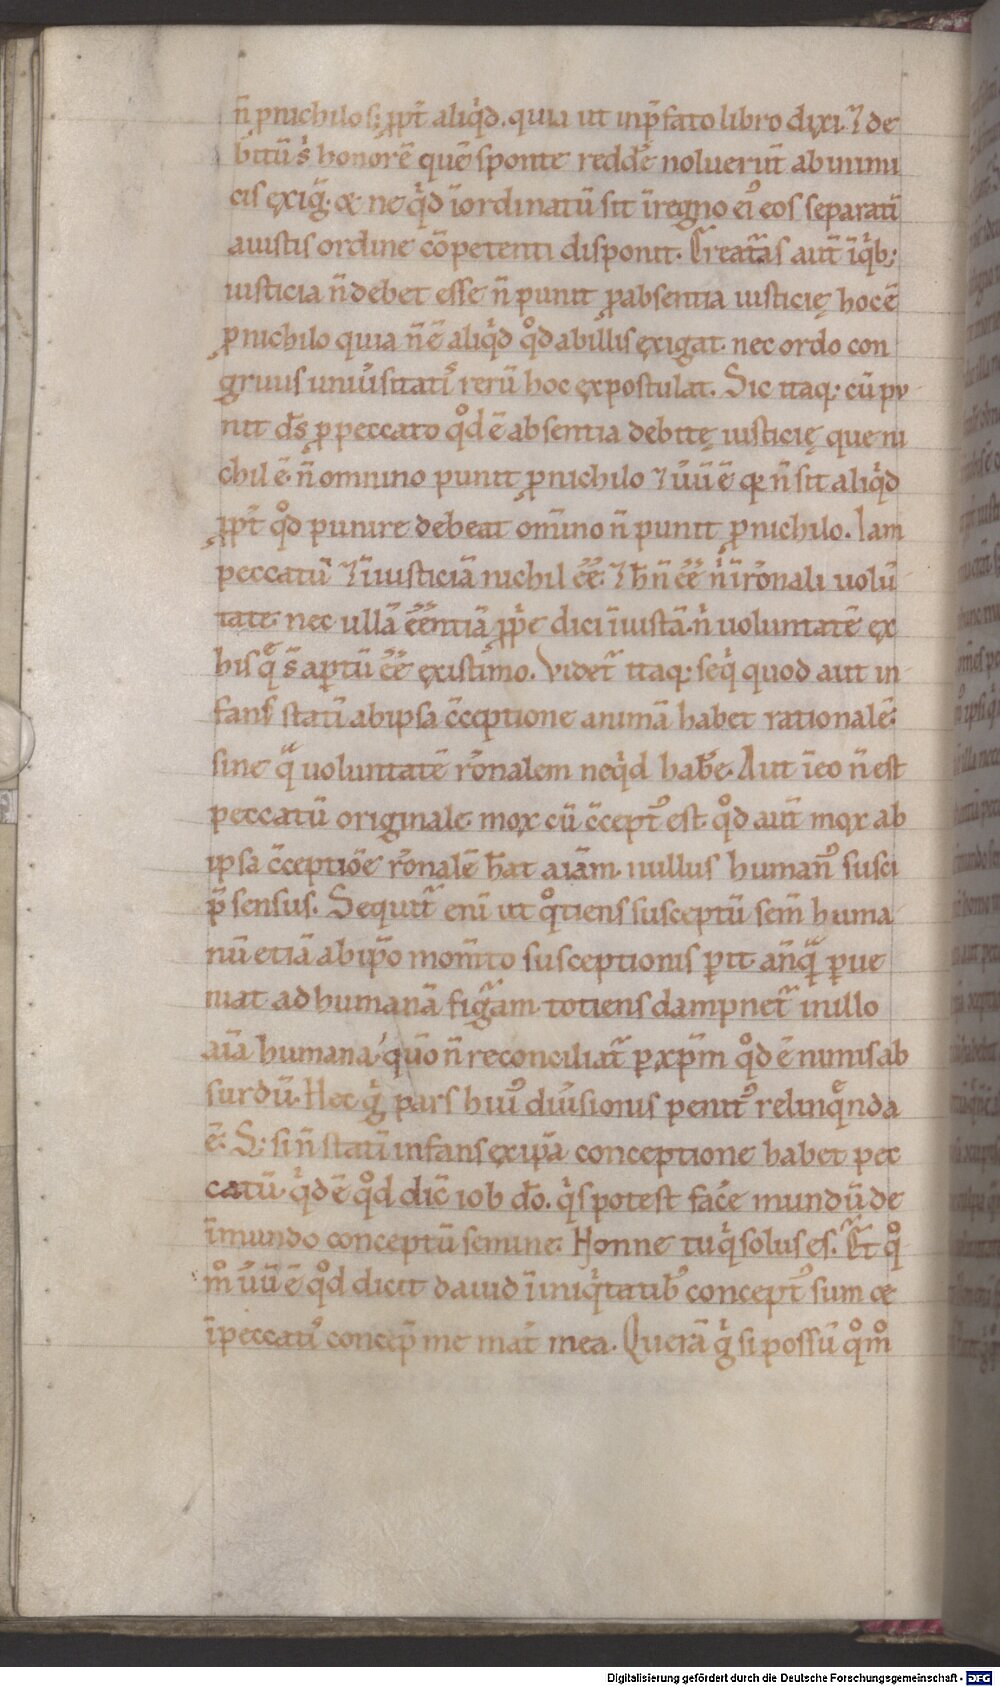 n̄ p nichilo s; ꝓpt̄ aliq̇d. quia ut in p̄fato libro dixi ⁊ de
bitū s̓ honorē quē sponte redd̓e noluerūt ab inimi
cis exiḡ. & ne q̇d īordinatū sit ī regno ei᾽ eos separati
a iustis ordine cōpetenti disponit. Creat̄as aut̄ ī q̇b;
iusticia n̄ debet esse n̄ punit ꝓ absentia iusticię hoc ē
ꝓ nichilo quia n̄ ē aliq̇d qͦd ab illis exigat. nec ordo con
gruus uniu̓sitati᾽ rerū hoc expostulat. Sic itaq; cū pu
nit d̄s ꝓ peccato qͦd ē absentia debitę iusticię que ni
chil ē. n̄ omnino punit ꝓ nichilo ⁊ u̓ū ē qꝛ n̄ sit aliq̇d
ꝓpt̄ qͦd punire debeat om̄ino n̄ punit ꝓ nichilo. Iam
peccatū ⁊ īiusticiā nichil ēē. ⁊ h̄ n̄ ēē n̓ ī r̄onali uolū
tate. nec ullā ēēntiā ꝓp̓e dici īiustā. n̓ uoluntatē ex
his qͤ s̄ ap̱tū ēē existimo. Videt᷑ itaq; seq̇ quod aut in
fans statī ab ipsa c̄ceptione animā habet rationalē.
sine qᷓ uoluntatē r̄onalem neq̇d hab̓e. Aut ī eo n̄ est
peccatū originale. mox cū c̄cept᾽ est. qͦd aut̄ mox ab
ipsa c̄ceptiōe r̄onalē h̄at aīam. nullus human᾽ susci
p̄ sensus. Sequit᷑ enī ut qͦtiens susceptū sem̄ huma
nū etiā ab ip̄o mom̄to susceptionis ꝑit anq̄ᷓ ꝑue
niat ad humanā figᷓam. totiens dampnet᷑ in illo
aīa humana. quō n̄ reconciliat᷑ ꝑ xp̄m qͦd ē nimis ab
surdū. Hec g̓ pars hui᾽ diu̓sionis penit᾽ relinqͤnda
ē. S; si n̄ statī infans ex ip̄a conceptione habet pec
catū. q̇d ē qͦd dic̄ iob d̄o. q̇s potest fac̓e mundū de
īmundo conceptū semine. Nonne tu q̇ solus es. Et qͦ
mͦ u̓ū ē qͦd dicit dauid ī iniq̇tatib᾽ concept᾽ sum &
ī peccati᾽ concep̄ me mat̓ mea. Querā g̓ si possū qͦmͦ
Digitalisierung gefördert durch die Deutsche Forschungsgemeinschaft - DFG